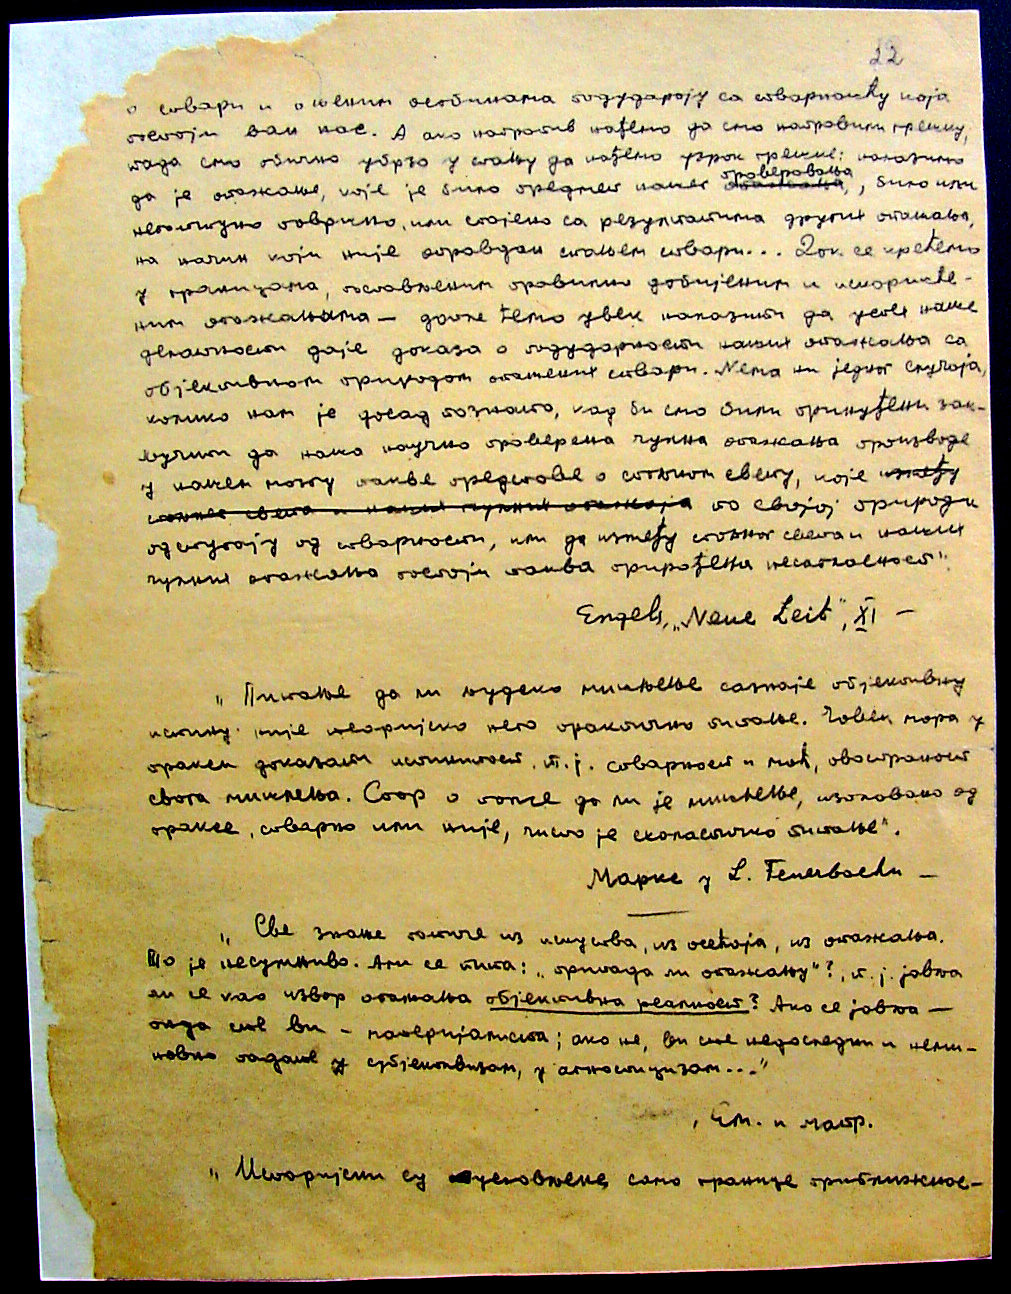 22
о ствари и о њеним особинама подударају са стварношћу која
постоји ван нас. А ако напротив нађемо да смо направили грешку,
тада смо обично убрзо у стању да нађемо узрок грешке: налазимо
да је опажање, које је било предмет нашег проверовања, било или
непотпуно површно, или спојено са резултатима других опажања,
на начин који није оправдан стањем ствари... Док се крећемо
у границама, постављеним правилно добијеним и искоришће-
ним опажањима — дотле ћемо увек налазити да успех наше
делатности даје доказа о подударности наших опажања са
објективном природом опажених ствари. Нема ни једног случаја,
колико нам је досад познато, кад би смо били принуђени зак-
ључити да наша научно проверена чулна опажања производе
у нашем мозгу такве представе о спољном свету, које између
спољнег света и наших чулних опажаја по својој природи
одступају од стварности, или да између спољног света и наших
чулних опажања постоји таква прирођена несагласност".
Engels, „Neue Zeit", XI —
„Питање да ли људско мишљење сазнаје објективну
истину није теоријско него практично питање. Човек мора у
пракси доказати истинитост, т.ј. стварност и моћ, овостраност
свога мишљења. Спор о томе да ли је мишљење, изоловано од
праксе, стварно или није, чисто је схоластичко питање".
Маркс у L. Feuerbachu —
„Све знање потиче из искуства, из осећаја, из опажања.
То је несумњиво. Али се пита: „припада ли опажању"?, т.ј. јавља
ли се као извор опажања објективна реалност? Ако се јавља —
онда сте ви - материјалиста; ако не, ви сте недоследни и неми-
новно падате у субјективизам, у агностицизам..."
, Ем. и матр.
„Историјски су условљене само границе приближнос-